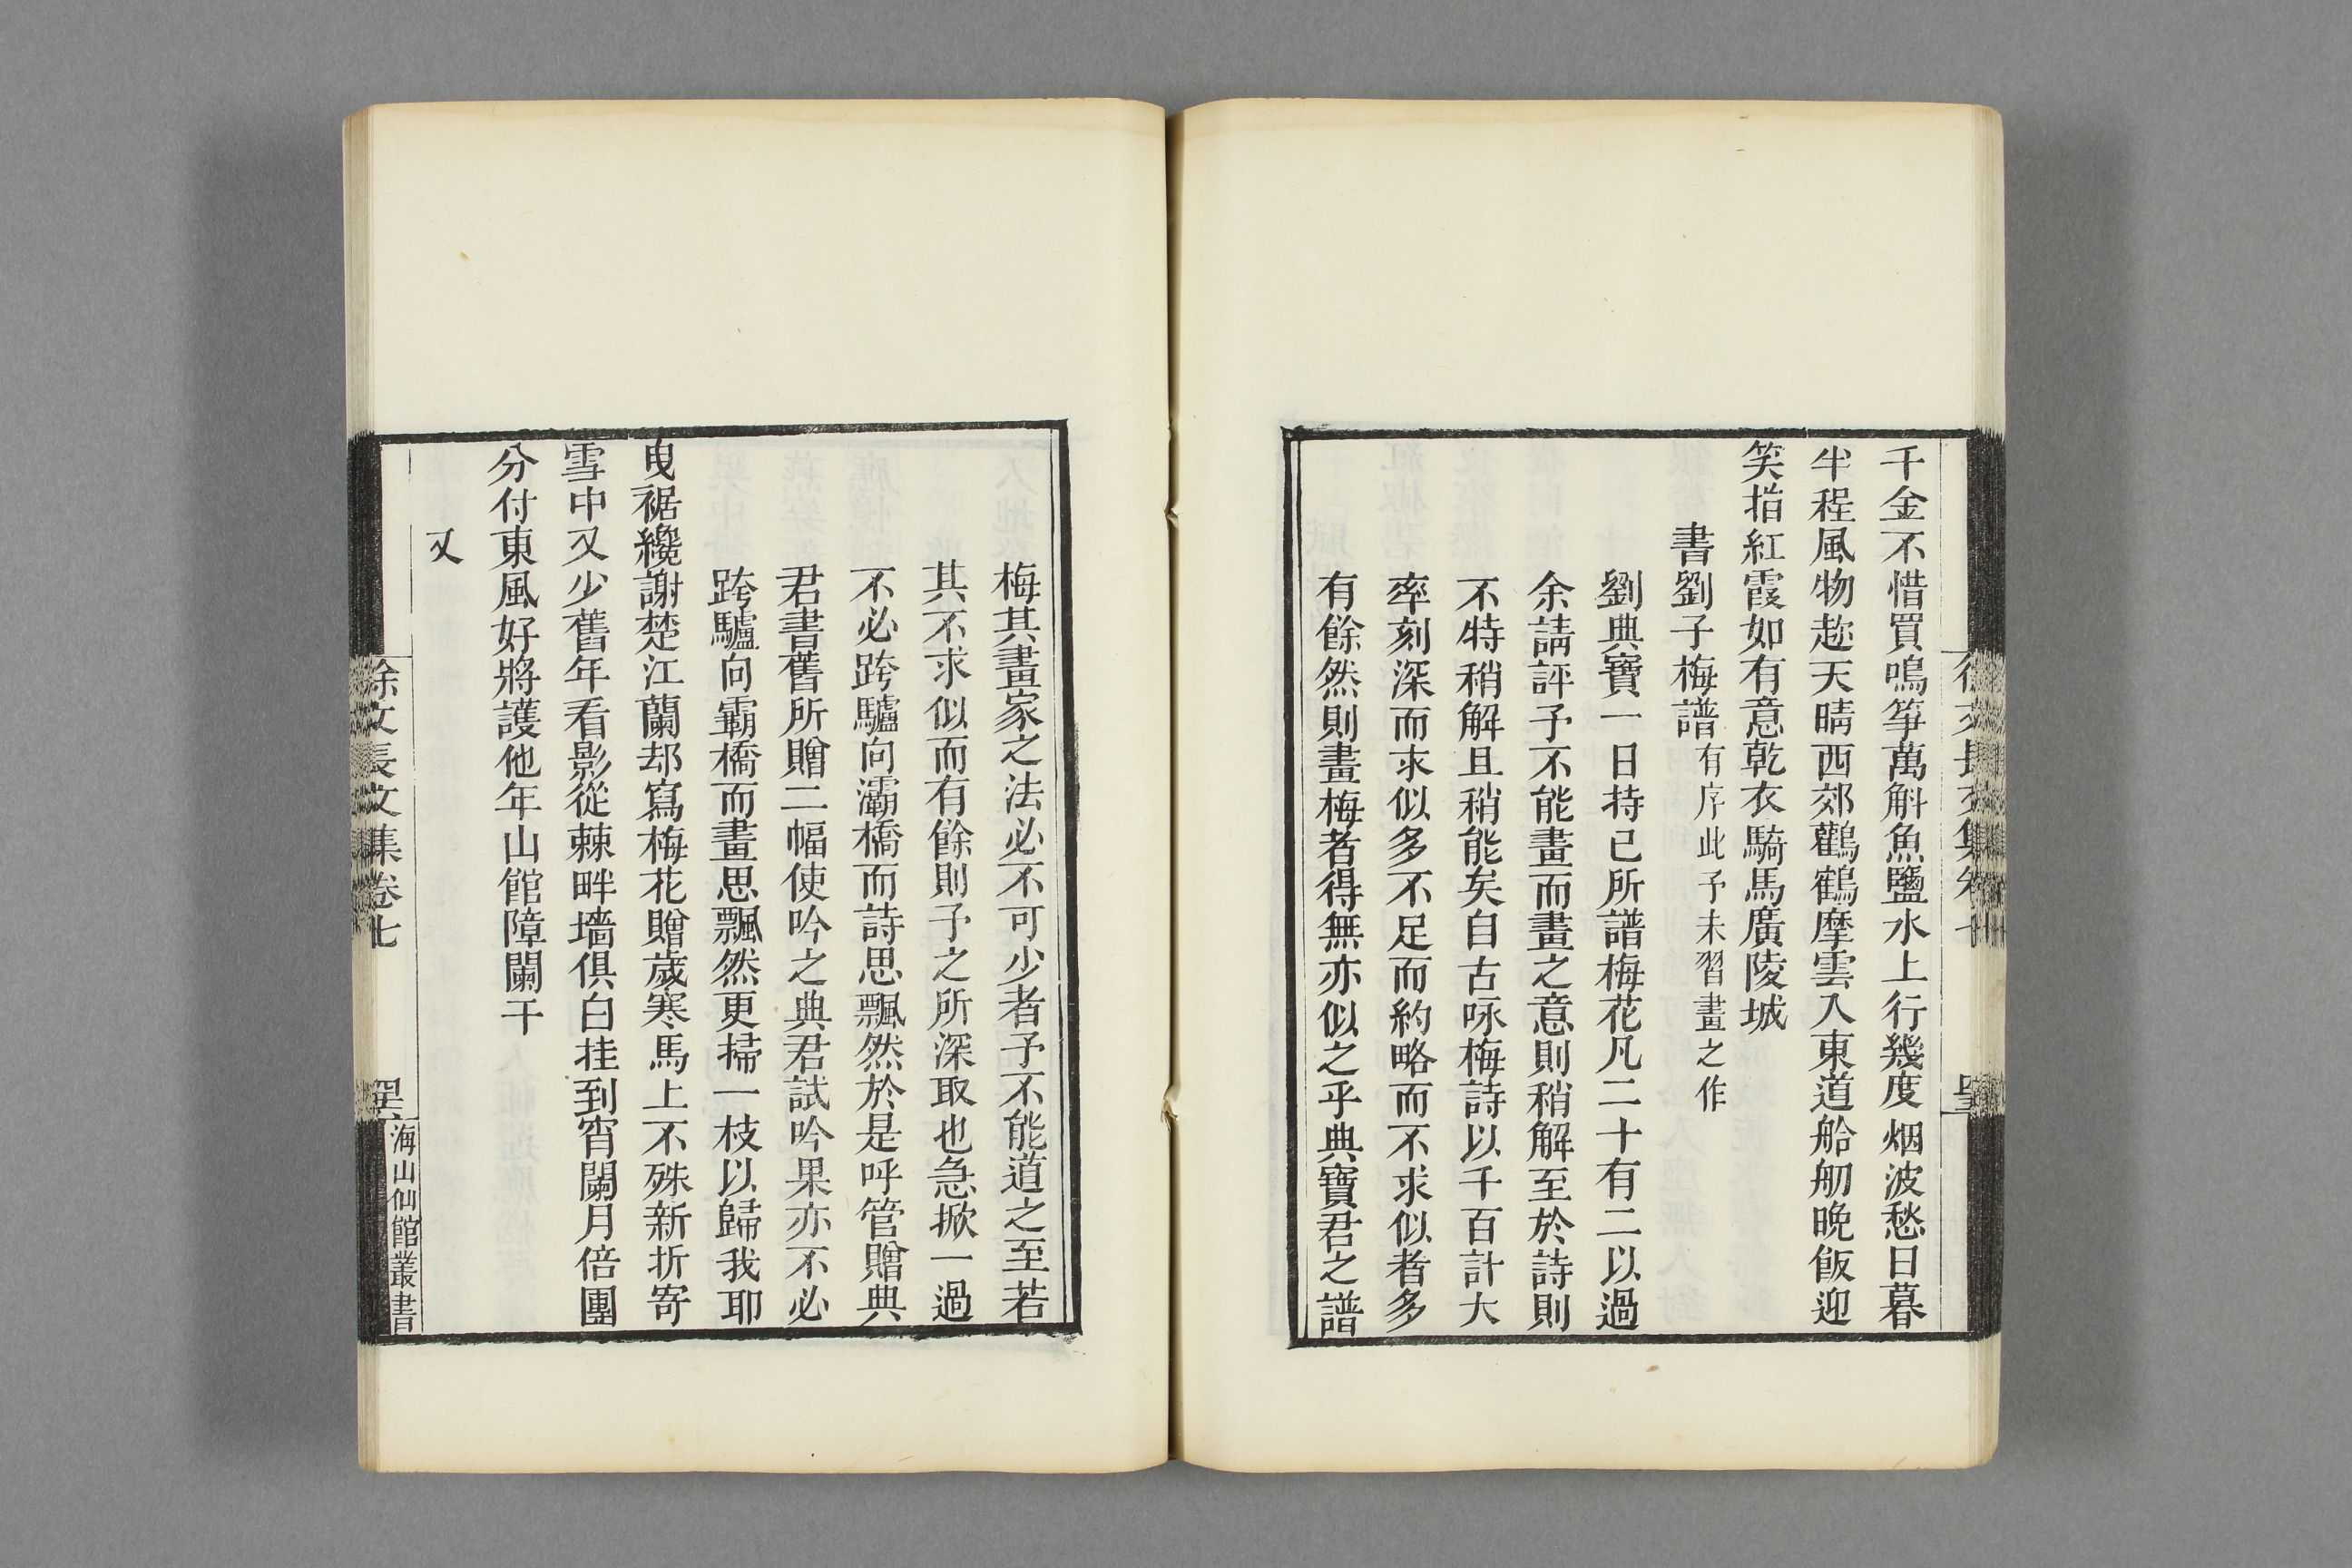 千金不惜買鳴筝萬斛魚鹽水上行幾度烟波愁日暮
半程風物趂天晴西郊鸛鶴摩雲入東道船舠晚飯迎
笑指紅霞如有意乾衣騎馬廣陵城
書劉子梅譜有序此予未習畫之作
劉典寶一日持己所譜梅花凡二十有二以過
余請評予不能畫而畫之意則稍解至於詩則
不特稍解且稍能矣自古咏梅詩以千百計大
率刻深而求似多不足而約略而不求似者多
有餘然則畫梅者得無亦似之乎典寶君之譜
梅其畫家之法必不可少者予不能道之至若
其不求似而有餘則予之所深取也急掀一過
不必跨驢向灞橋而詩思飄然於是呼管贈典
君書舊所贈二幅使吟之典君試吟果亦不必
跨驢向霸橋而畫思飄然更掃一枝以歸我耶
曳裾纔謝楚江蘭却寫梅花贈歲寒馬上不殊新折寄
雪中又少舊年看影從棘畔墻俱白挂到宵闌月倍團
分付東風好將護他年山館障闌干
又
徐文長文集卷七
海山仙館叢書